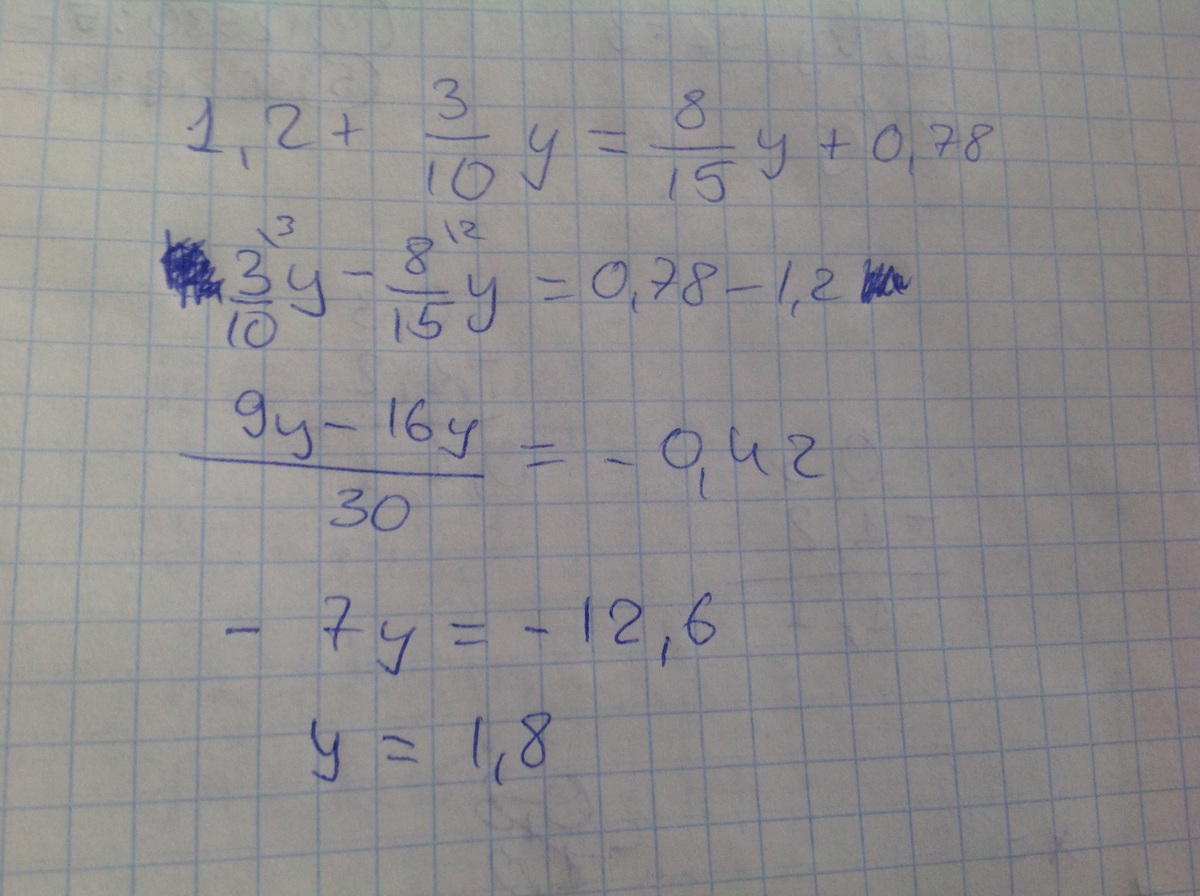 1,2 + 3/10 y = 8/15 y + 0,78
3\3/10 y - 8\2/15 y = 0,78 - 1,2
9y - 16y/30 = - 0,42
- 7y = - 12,6
y = 1,8